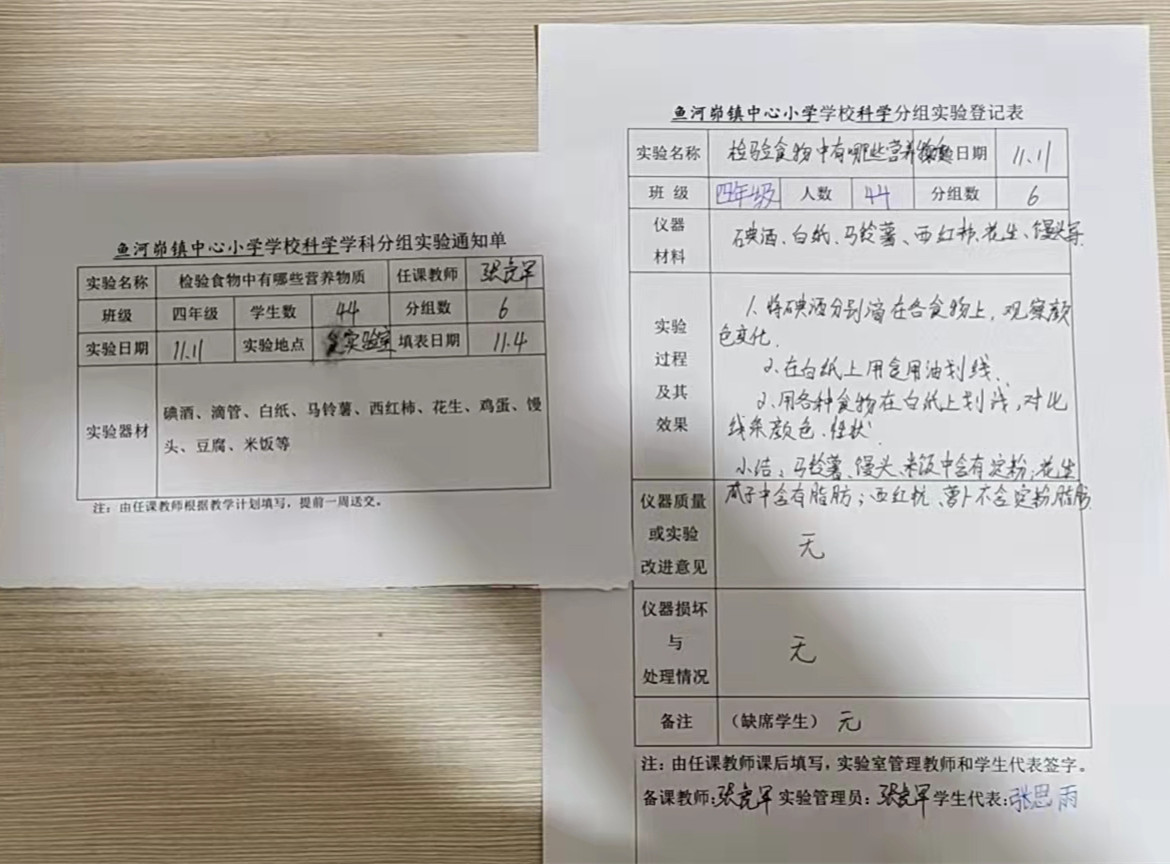 鱼河峁镇中心小学学校科学学科分组实验通知单
实验名称 检验食物中有哪些营养物质 任课教师 张亮军
班级 四年级 学生数 44 分组数 6
实验日期 11.11 实验地点 实验室 填表日期 11.4
实验器材 碘酒、滴管、白纸、马铃薯、西红柿、花生、鸡蛋、馒
头、豆腐、米饭等
注：由任课教师根据教学计划填写，提前一周送交。
鱼河峁镇中心小学学校科学分组实验登记表
实验名称 检验食物中有哪些营养物质 日期 11.11
班 级 四年级 人数 44 分组数 6
仪器
材料
碘酒、白纸、马铃薯、西红柿、花生、馒头等
实验
过程
及其
效果
1.将碘酒分别滴在各食物上，观察颜
色变化.
2.在白纸上用食用油划线、
2.用各种食物在白纸上划线，对比
线条颜色、性状.
小结：马铃薯、馒头、米饭中含有淀粉；花生
瓜子中含有脂肪；西红柿、萝卜不含淀粉脂肪.
仪器质量
或实验
改进意见
无
仪器损坏
与
处理情况
无
备注 （缺席学生） 无
注：由任课教师课后填写，实验室管理教师和学生代表签字。
备课教师：张亮军 实验管理员：张亮军 学生代表：张思雨